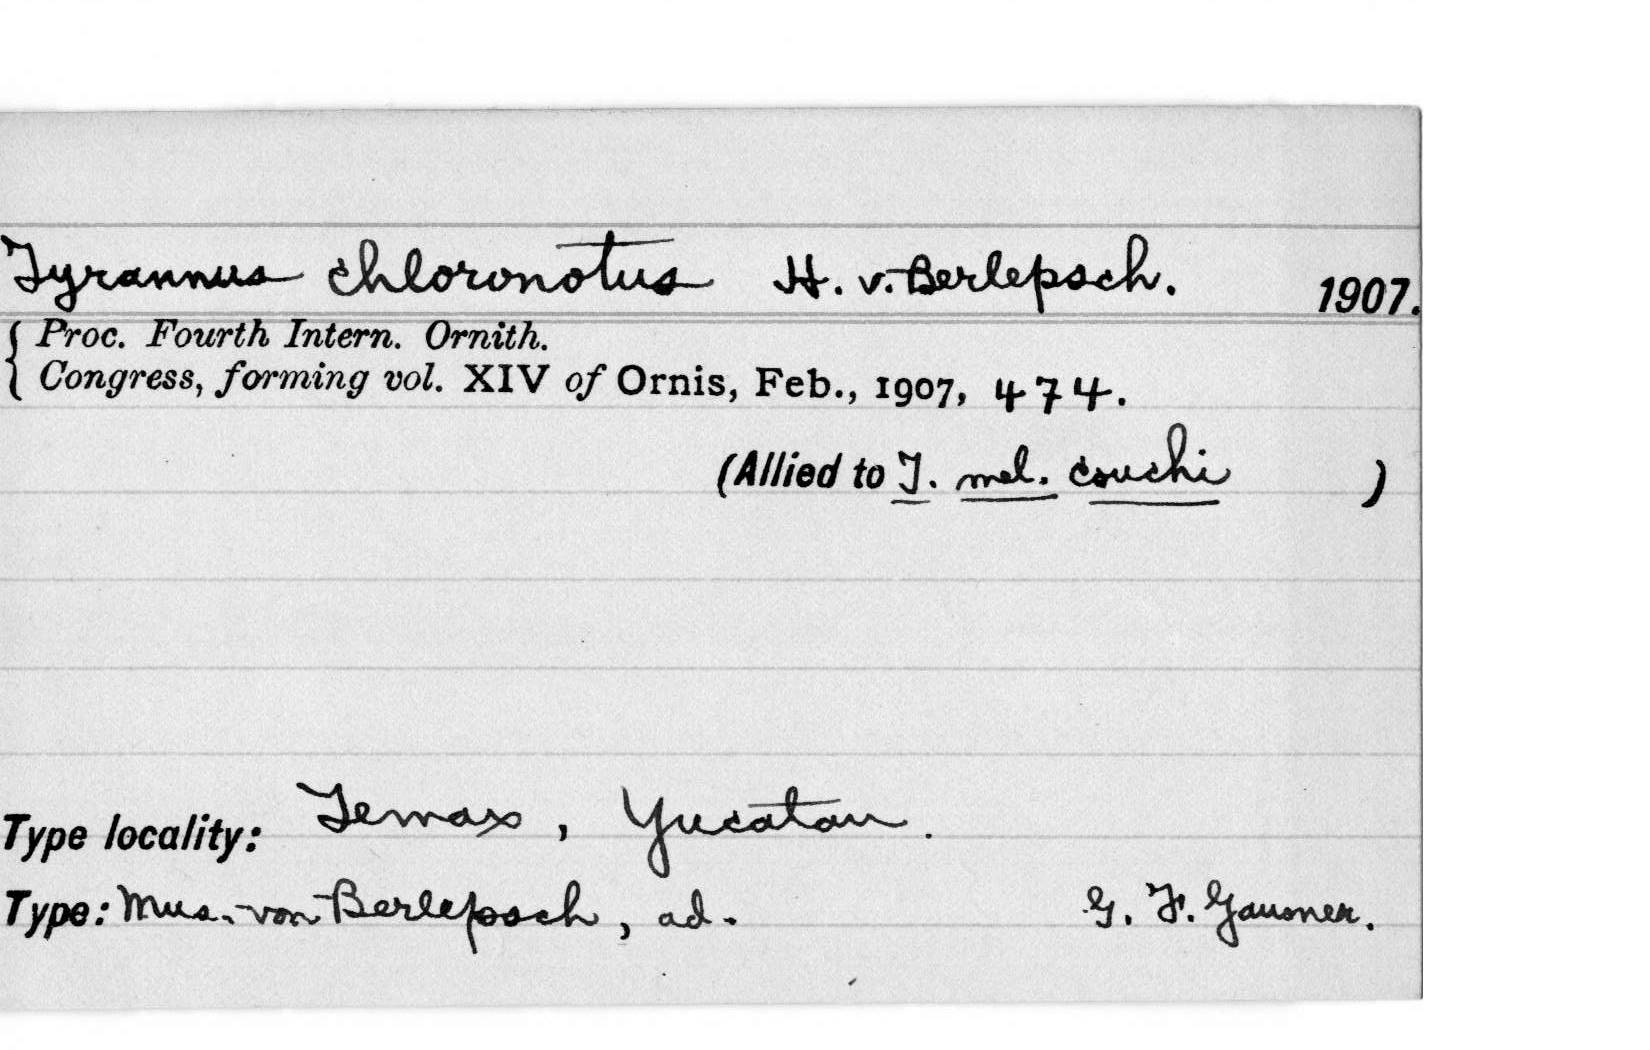 Tyrannus chloronotus H. v. Berlepsch. 1907.
{ Proc. Fourth Intern. Ornith.
Congress, forming vol. XIV of Ornis, Feb., 1907, 474.
(Allied to T. mel. couchi )
Type locality: Temax, Yucatan.
Type: Mus. von Berlepsch, ad. G. F. Gaumer.